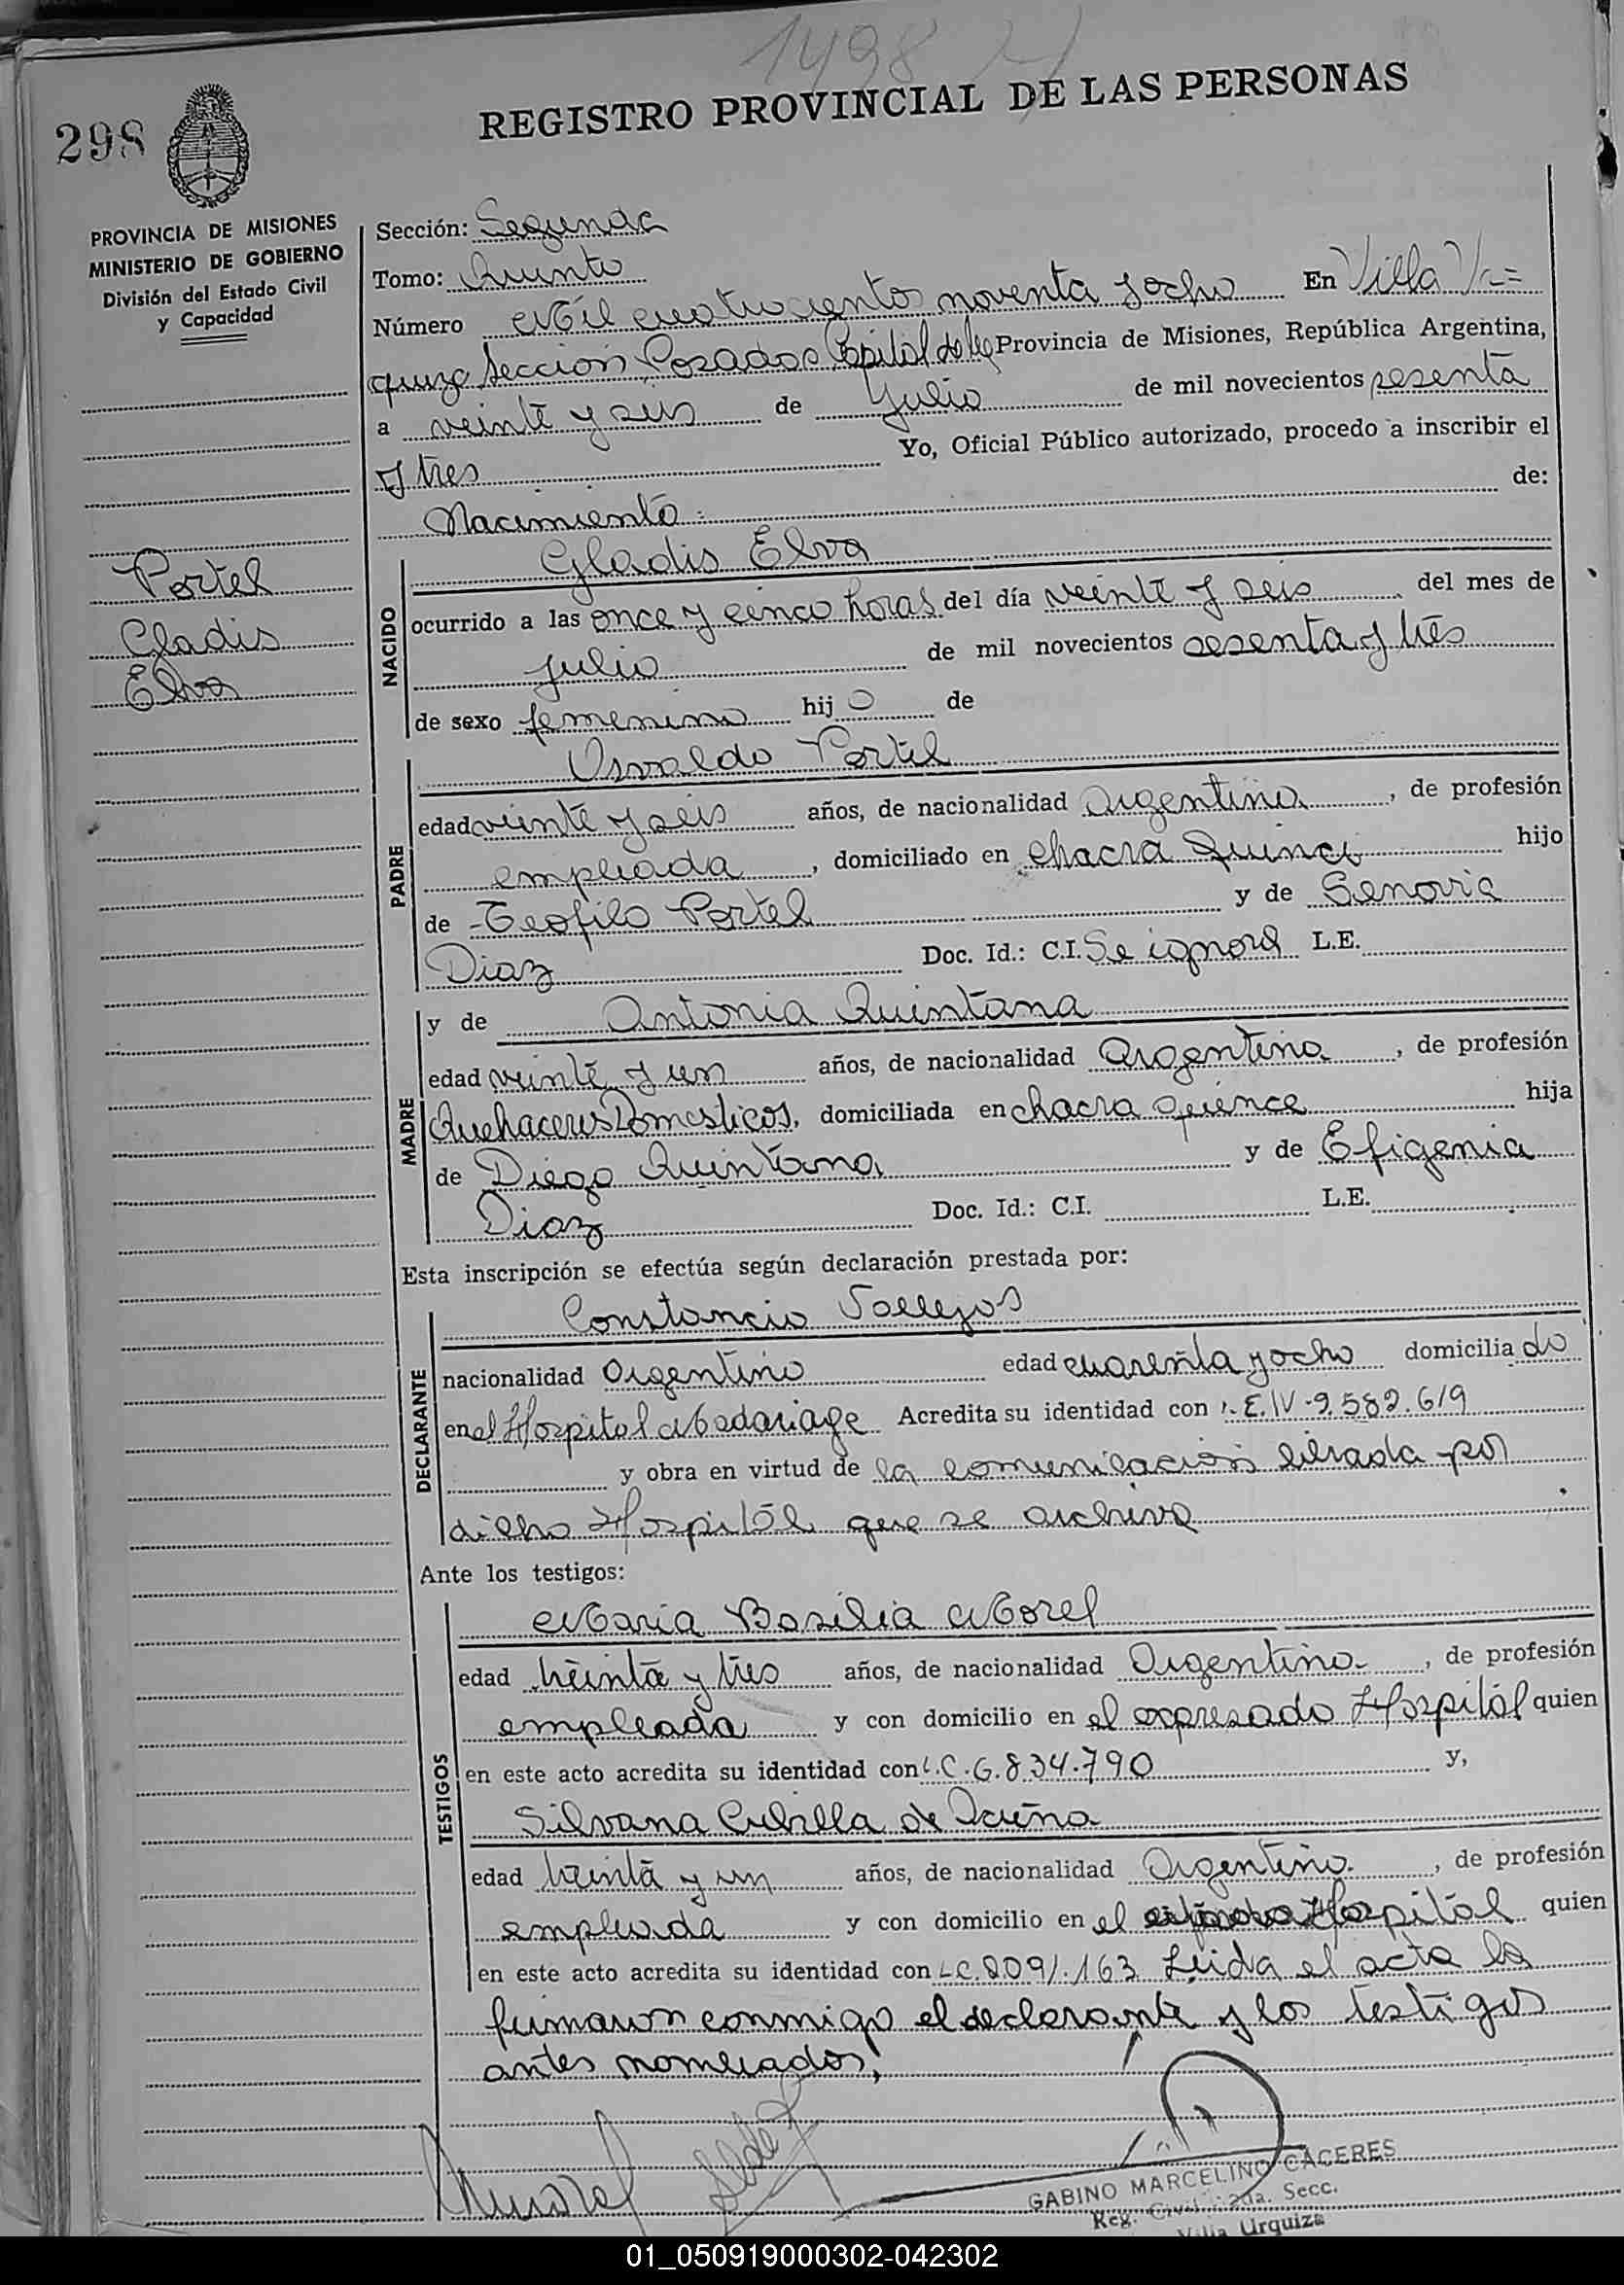 1498
298
REGISTRO PROVINCIAL DE LAS PERSONAS
PROVINCIA DE MISIONES
MINISTERIO DE GOBIERNO
División del Estado Civil
y Capacidad
Portel
Gladis
Elva
Sección: Segunda
Tomo: Quinto
Número Mil cuatrocientos noventa y ocho En Villa Ur=
quiza Sección Posadas Capital de la Provincia de Misiones, República Argentina,
a veinte y seis de Julio de mil novecientos sesenta
y tres Yo, Oficial Público autorizado, procedo a inscribir el
Nacimiento de:
NACIDO
Gladis Elva
ocurrido a las once y cinco horas del día veinte y seis del mes de
julio de mil novecientos sesenta y tres
de sexo femenino hijo de
PADRE
Osvaldo Portel
edad veinte y seis años, de nacionalidad Argentina, de profesión
empleada, domiciliado en chacra Quince hijo
de Teofilo Portel y de Senovia
Diaz Doc. Id.: C.I. Se ignora L.E.
MADRE
y de Antonia Quintana
edad veinte y un años, de nacionalidad Argentina, de profesión
Quehaceres Domesticos, domiciliada en chacra quince hija
de Diego Quintana y de Efigenia
Diaz Doc. Id.: C.I. L.E.
Esta inscripción se efectúa según declaración prestada por:
DECLARANTE
Constancio Vallejos
nacionalidad Argentino edad cuarenta y ocho domiciliado
en el Hospital Madariaga Acredita su identidad con L.E. Nº 9.582.619
y obra en virtud de la comunicación librada por
dicho Hospital que se archiva
Ante los testigos:
TESTIGOS
Maria Basilia Morel
edad treinta y tres años, de nacionalidad Argentina, de profesión
empleada y con domicilio en el expresado Hospital quien
en este acto acredita su identidad con L.C. 6.834.790 y,
Silvana Cubilla de Acuña
edad treinta y un años, de nacionalidad Argentina, de profesión
empleada y con domicilio en el Hospital quien
en este acto acredita su identidad con L.C. 2.091.163 Leida el acta la
firmaron conmigo el declarante y los testigos
antes nombrados,
GABINO MARCELINO CACERES
Reg. Civil 2da. Secc.
Villa Urquiza
01_050919000302-042302